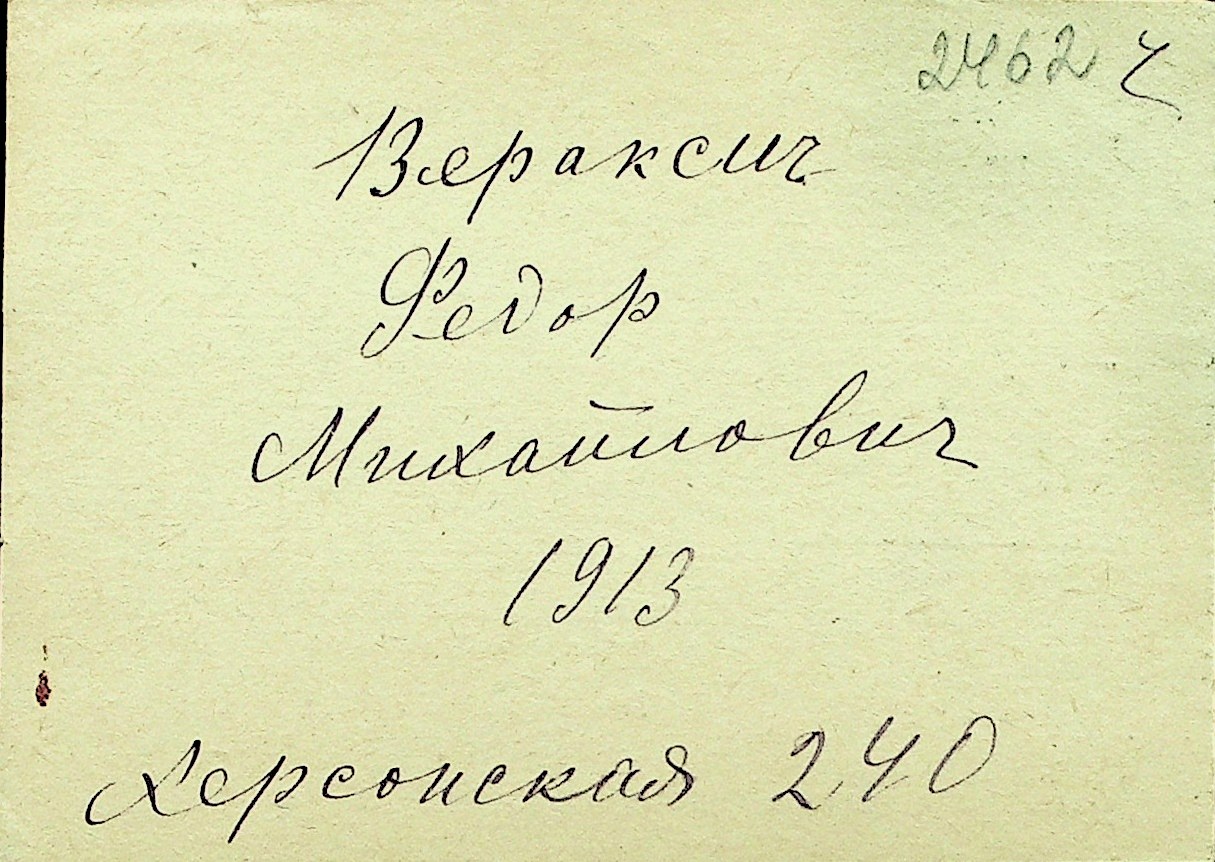 2462 ч
Вераксич
Федор
Михайлович
1913
Херсонская 240